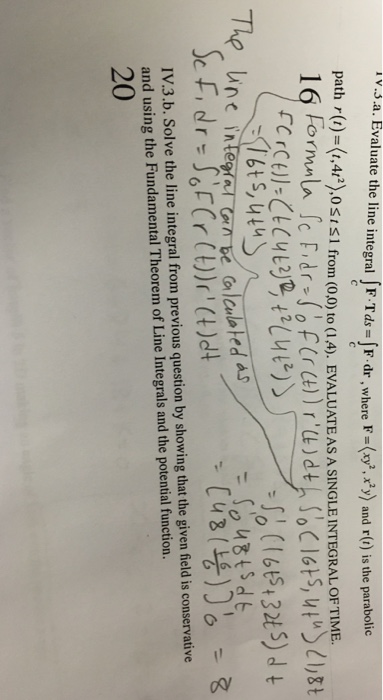 IV.3.a. Evaluate the line integral ∫_C F·T ds = ∫_C F·dr, where F = ⟨xy², x²y⟩ and r(t) is the parabolic
path r(t) = (t, 4t²), 0 ≤ t ≤ 1 from (0,0) to (1,4). EVALUATE AS A SINGLE INTEGRAL OF TIME.
16 Formula ∫c F, dr = ∫₀¹ F(r(t)) r'(t)dt, ∫₀¹⟨16t5, 4t4⟩⟨1, 8t
F(r(t)) = ⟨t(4t²)², t²(4t²)⟩
= ⟨16t5, 4t4⟩
= ∫₀¹ (16t5+32t5)dt
The line integral can be calculated as
= ∫₀¹ 48t5dt
∫c F, dr = ∫₀¹ F(r(t)) r'(t)dt
= [48(t6/6)]₀¹ = 8
IV.3.b. Solve the line integral from previous question by showing that the given field is conservative
and using the Fundamental Theorem of Line Integrals and the potential function.
20